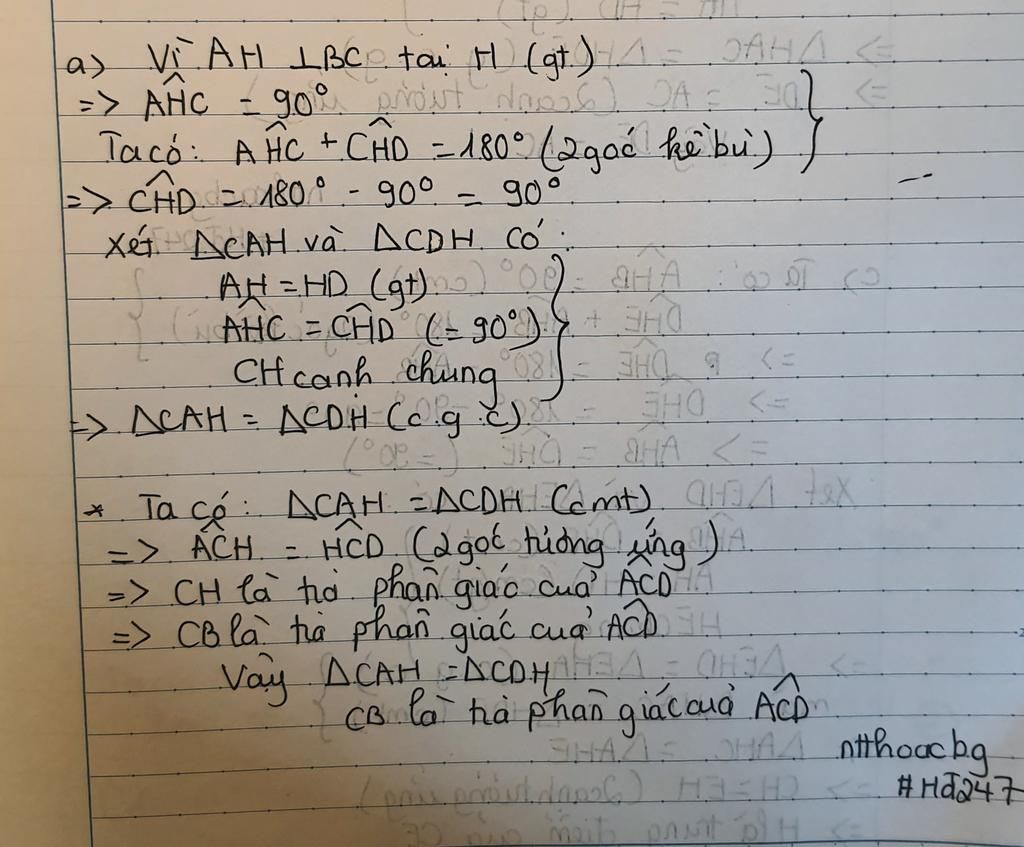 a) Vì AH ⊥BC tại H (gt)
=> AĤC = 90°
Ta có: AĤC + CĤD = 180° (2 góc kề bù)
=> CĤD = 180° - 90° = 90°
Xét ΔCAH và ΔCDH có:
AH = HD (gt)
AĤC = CĤD (= 90°)
CH cạnh chung
=> ΔCAH = ΔCDH (c.g.c)
* Ta có: ΔCAH = ΔCDH (cmt)
=> AĈH = HĈD (2 góc tương ứng)
=> CH là tia phân giác của AĈD
=> CB là tia phân giác của AĈD
Vậy ΔCAH = ΔCDH
CB là tia phân giác của AĈD
ntthoacbg
#Hđ247